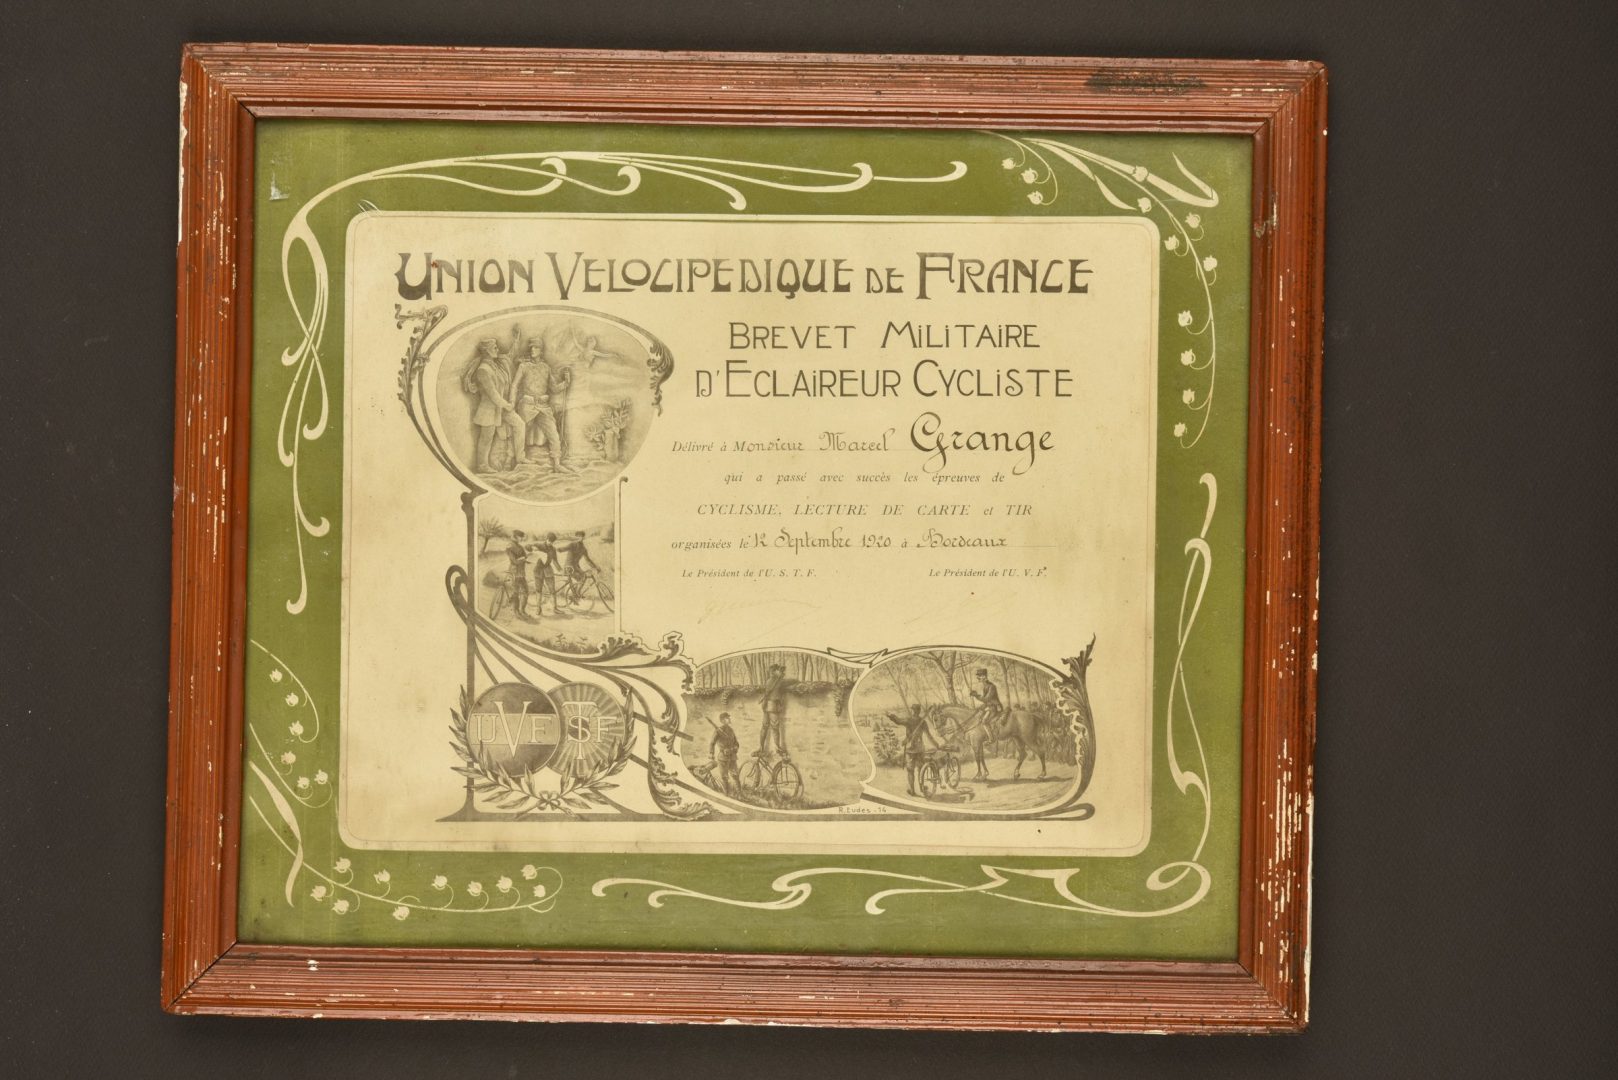 UNION VELOCIPEDIQUE DE FRANCE
BREVET MILITAIRE
D'ECLAIREUR CYCLISTE
Délivré à Monsieur Marcel Grange
qui a passé avec succès les épreuves de
CYCLISME, LECTURE DE CARTE et TIR
organisées le 12 Septembre 1920 à Bordeaux
Le Président de l'U. S. T. F. Le Président de l'U. V. F.
UVF STF